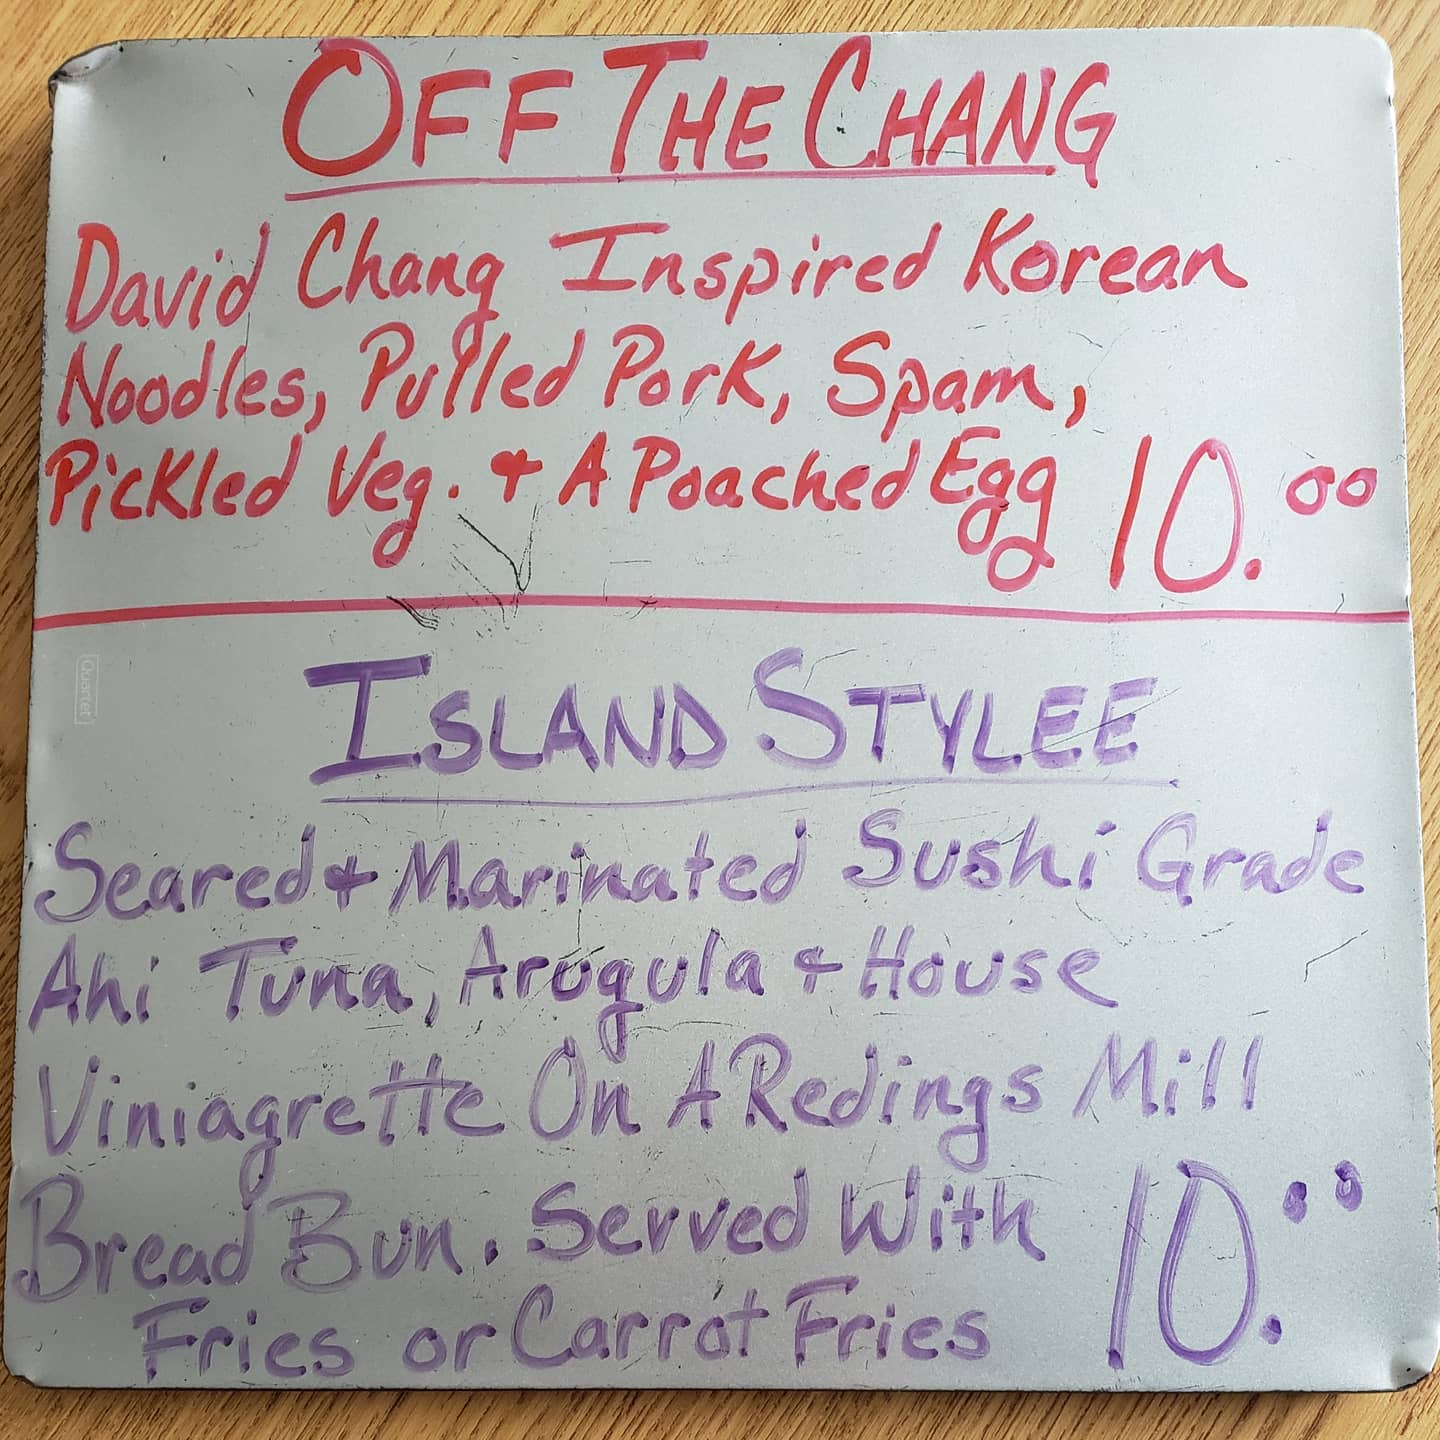 OFF THE CHANG
David Chang Inspired Korean
Noodles, Pulled Pork, Spam,
Pickled Veg. & A Poached Egg 10.00
Quartet
ISLAND STYLEE
Seared & Marinated Sushi Grade
Ahi Tuna, Arugula & House
Viniagrette On A Redings Mill
Bread Bun. Served With
Fries or Carrot Fries 10.00